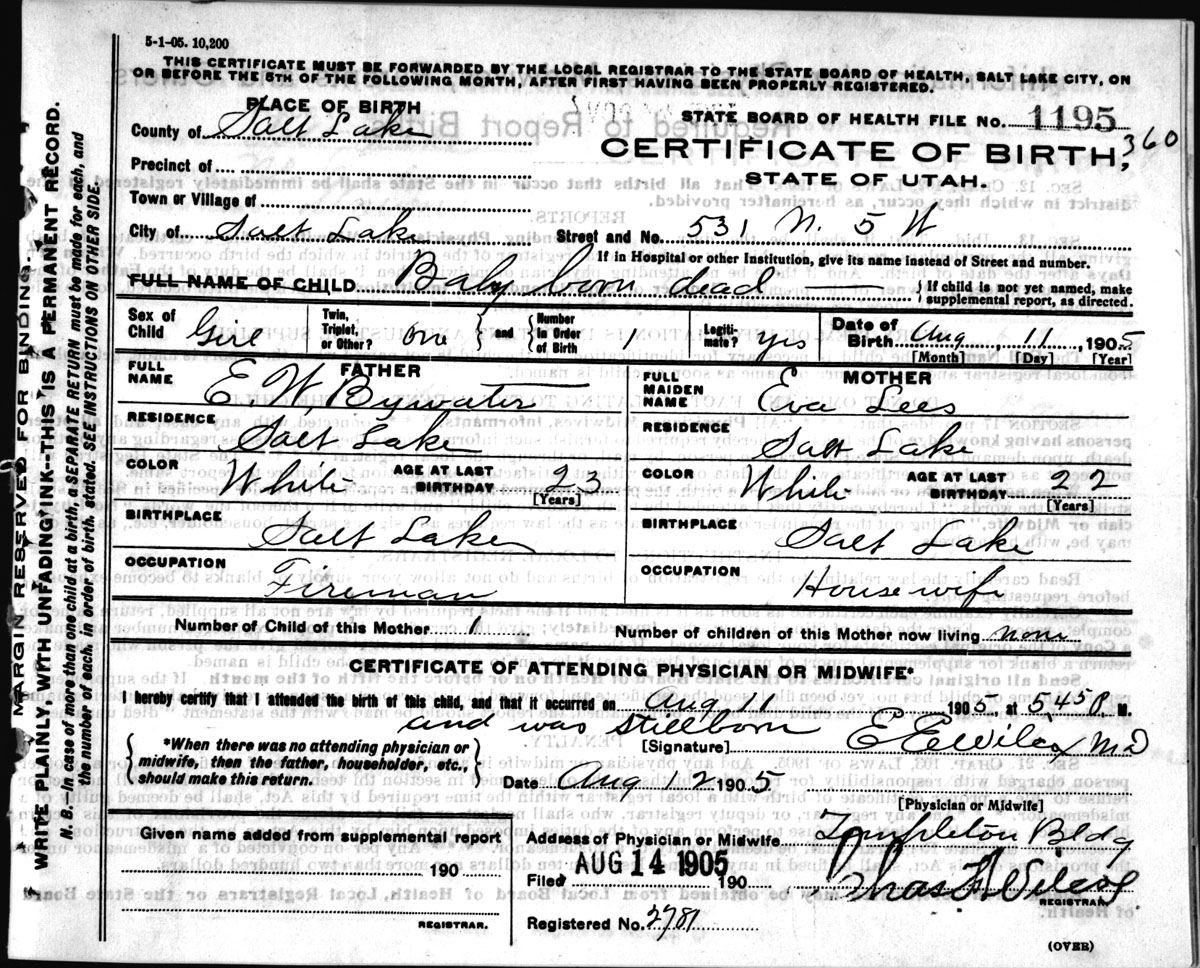 5-1-05. 10,200
THIS CERTIFICATE MUST BE FORWARDED BY THE LOCAL REGISTRAR TO THE STATE BOARD OF HEALTH, SALT LAKE CITY, ON
OR BEFORE THE 5TH OF THE FOLLOWING MONTH, AFTER FIRST HAVING BEEN PROPERLY REGISTERED.
PLACE OF BIRTH
STATE BOARD OF HEALTH FILE NO. 1195
County of Salt Lake
CERTIFICATE OF BIRTH, 360
Precinct of
STATE OF UTAH.
Town or Village of
City of Salt Lake Street and No. 531 N. 5 W
If in Hospital or other Institution, give its name instead of Street and number.
FULL NAME OF CHILD Baby born dead { If child is not yet named, make supplemental report, as directed.
Sex of Child Girl Twin, Triplet, or Other? one { and } Number in Order of Birth 1 Legitimate? yes Date of Birth Aug 11 1905
[Month] [Day] [Year]
FATHER
FULL NAME E W, Bywater
RESIDENCE Salt Lake
COLOR White AGE AT LAST BIRTHDAY 23 [Years]
BIRTHPLACE Salt Lake
OCCUPATION Fireman
MOTHER
FULL MAIDEN NAME Eva Lees
RESIDENCE Salt Lake
COLOR White AGE AT LAST BIRTHDAY 22 [Years]
BIRTHPLACE Salt Lake
OCCUPATION Housewife
Number of Child of this Mother 1 Number of children of this Mother now living none
CERTIFICATE OF ATTENDING PHYSICIAN OR MIDWIFE*
I hereby certify that I attended the birth of this child, and that it occurred on Aug 11 1905 at 545 P. M.
and was stillborn
{ *When there was no attending physician or
midwife, then the father, householder, etc.,
should make this return. }
[Signature] E E Wilcox MD
Date Aug 12 1905
[Physician or Midwife]
Given name added from supplemental report
190
REGISTRAR.
Address of Physician or Midwife Templeton Bldg
Filed AUG 14 1905 190 Chas F Wilcox
REGISTRAR.
Registered No. 2781
(OVER)
MARGIN RESERVED FOR BINDING.
WRITE PLAINLY, WITH UNFADING INK--THIS IS A PERMANENT RECORD.
N. B.--In case of more than one child at a birth, a SEPARATE RETURN must be made for each, and
the number of each, in order of birth, stated. SEE INSTRUCTIONS ON OTHER SIDE.